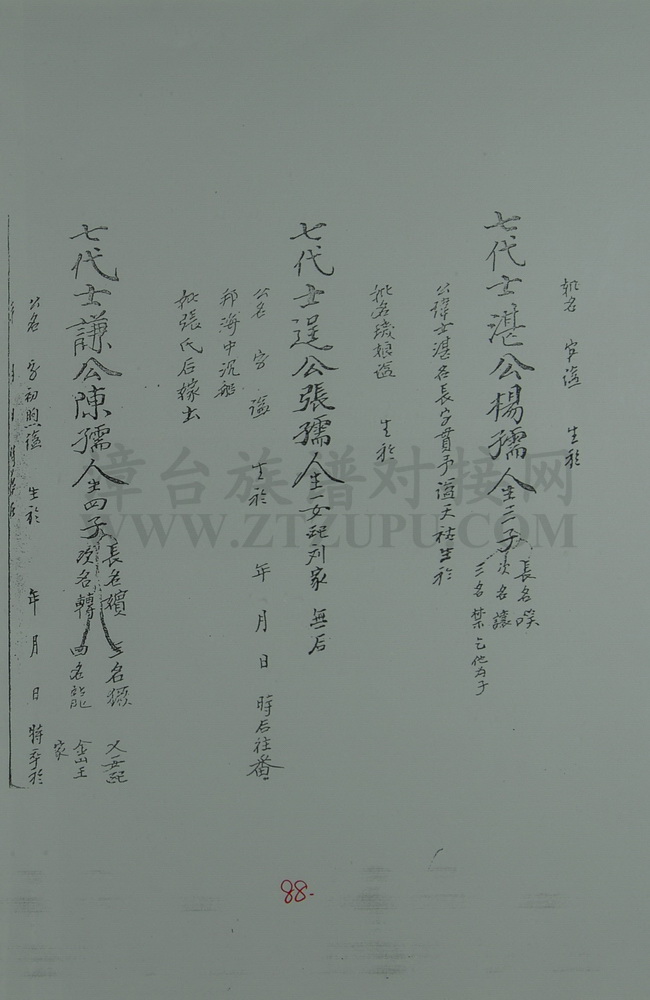 妣名 字 諡 生於
七代士湛公楊孺人生三子
長名
次名讓
三名禁乞他為子
公諱士湛名長字貫予諡天祐生於
妣名 娘諡 生於
七代士逞公張孺人生一女配列家 無后
公名 字 諡 生於 年 月 日 時后往番
邦海中沉船
妣張氏后嫁出
七代士謙公陳孺人生四子
長名 三名 又女配
次名轉 四名龍 金山王
家
公名 字初 諡 生於 年 月 日 時卒於
章台族譜对接网
WWW.ZTZUPU.COM
88.